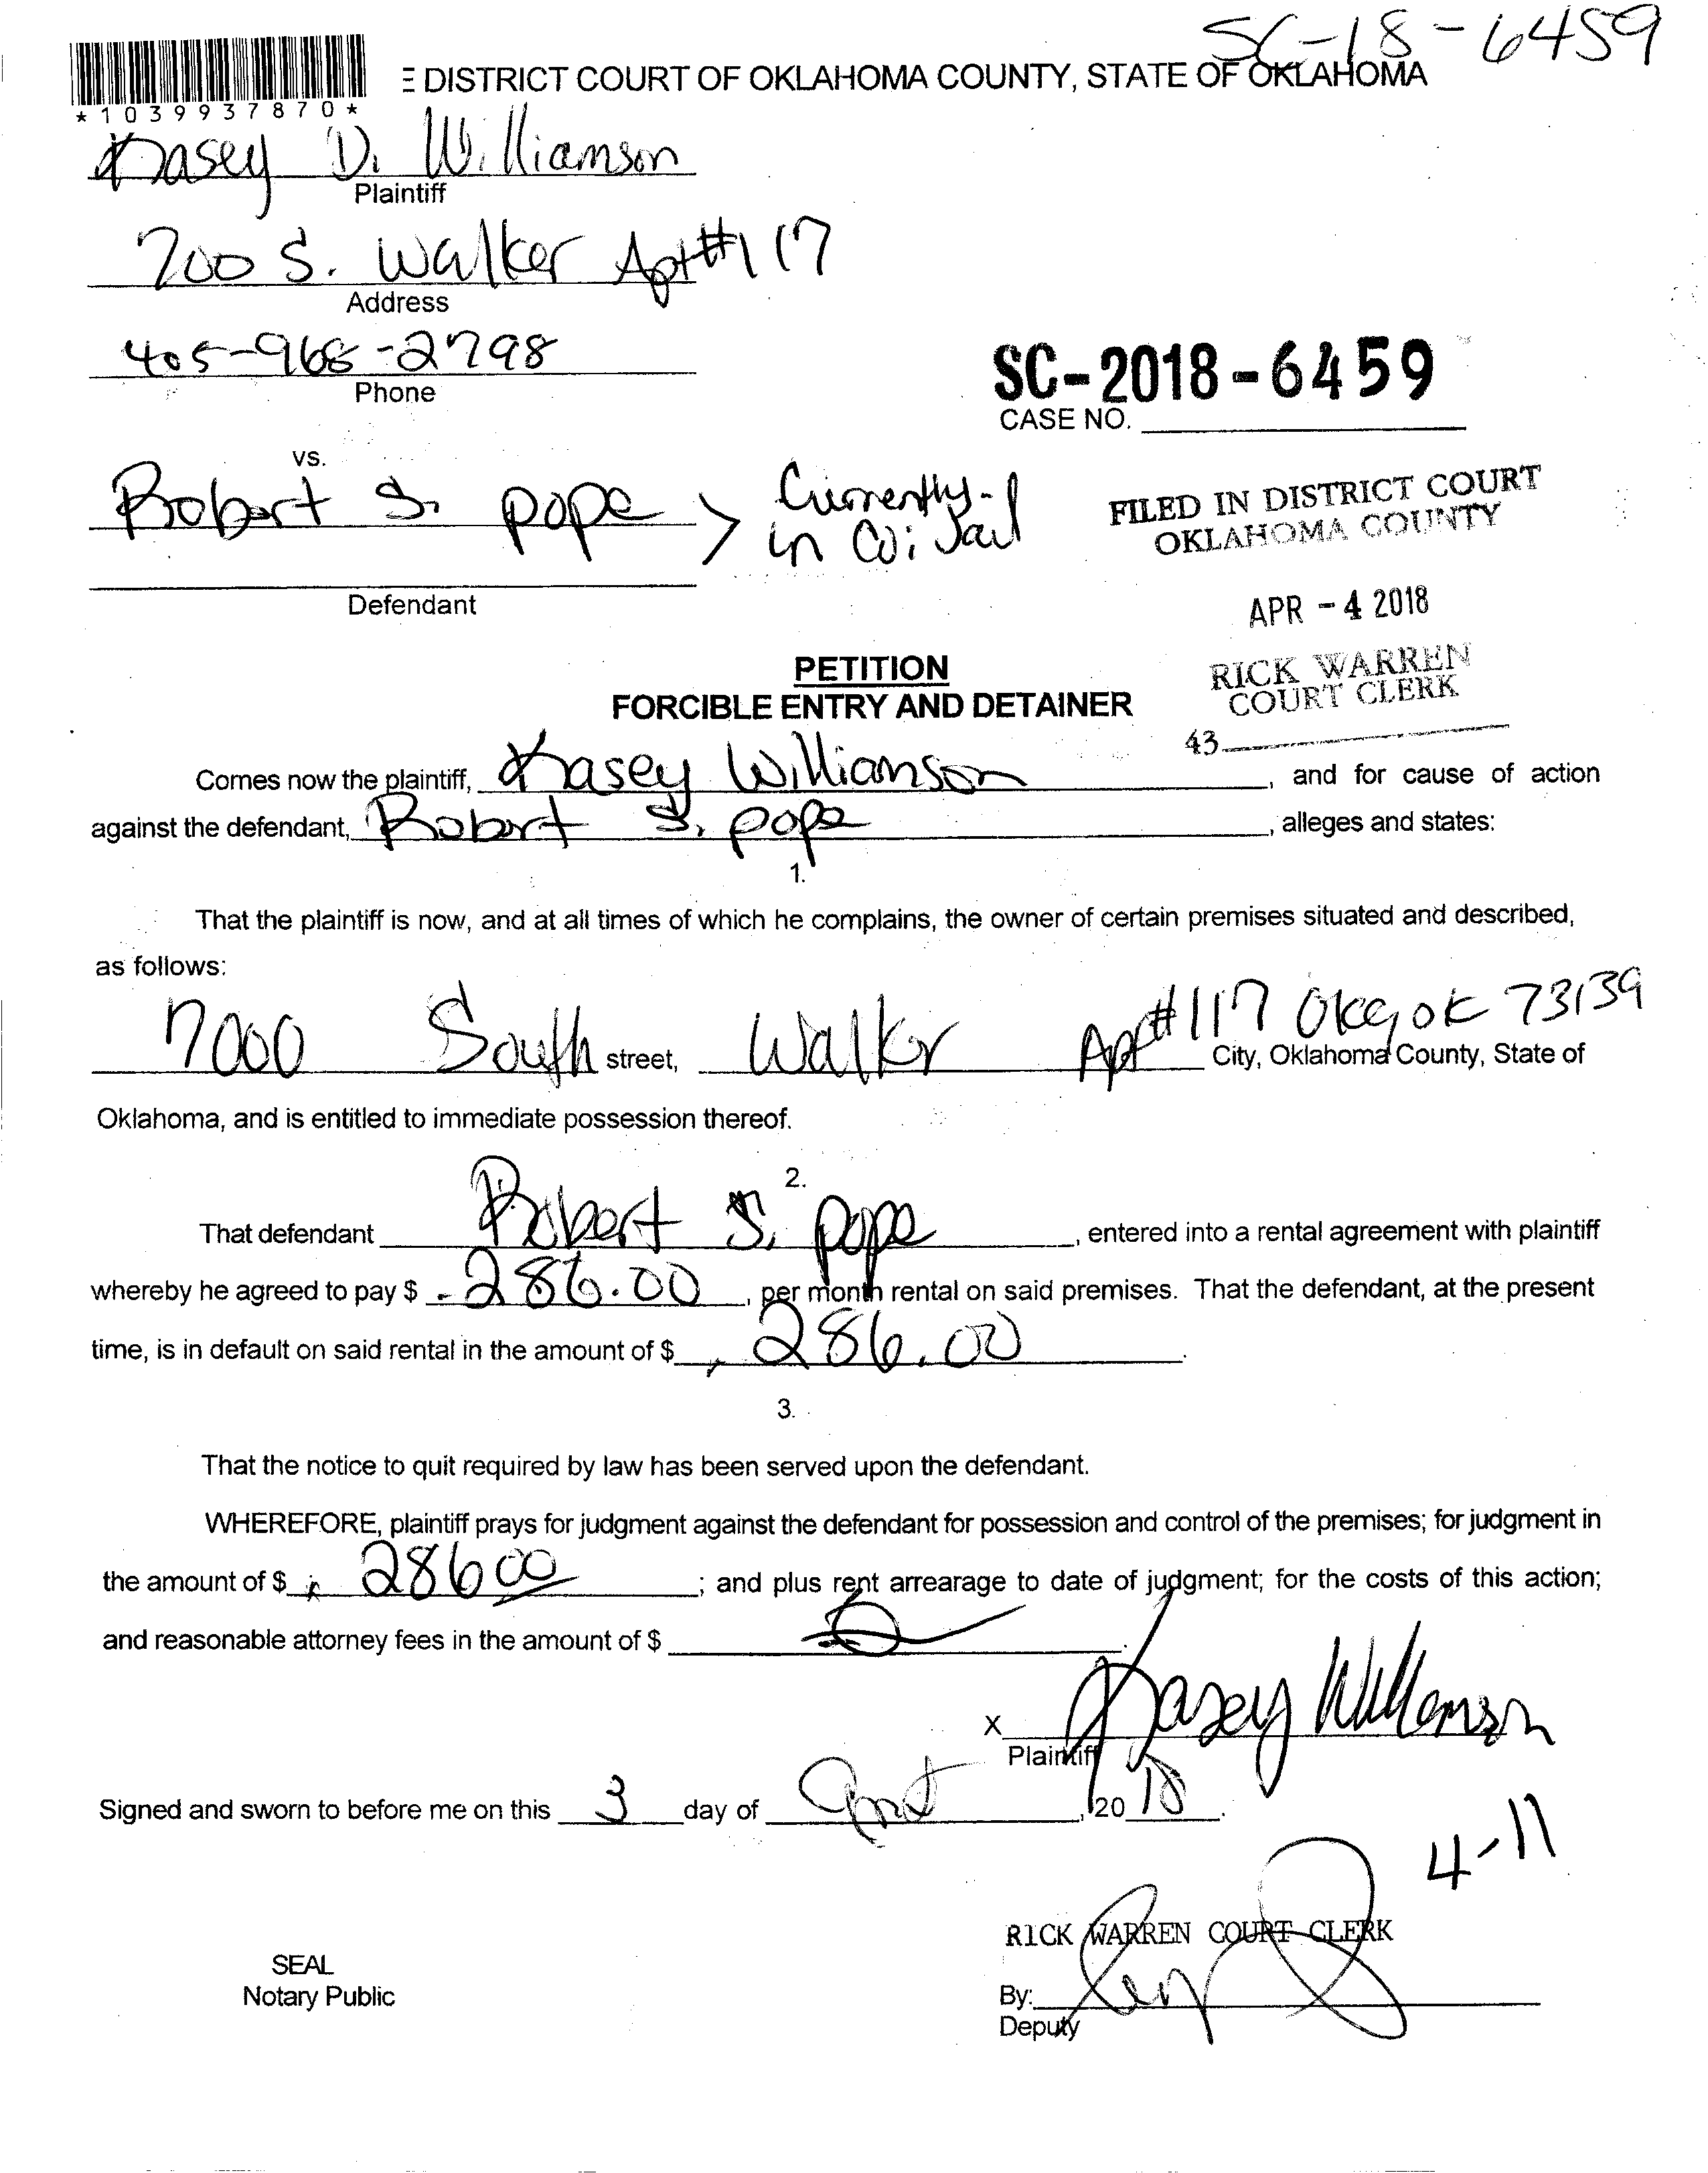 SC-18-6459
E DISTRICT COURT OF OKLAHOMA COUNTY, STATE OF OKLAHOMA
*1039937870*
Kasey D. Williamson
Plaintiff
700 S. Walker Apt #117
Address
405-968-2798
Phone
SC-2018-6459
CASE NO.
vs.
Robert S. pope > Currently-
in Co; Jail
FILED IN DISTRICT COURT
OKLAHOMA COUNTY
Defendant
APR - 4 2018
PETITION
FORCIBLE ENTRY AND DETAINER
RICK WARREN
COURT CLERK
43
Comes now the plaintiff, Kasey Williamson, and for cause of action
against the defendant, Robert S. pope, alleges and states:
1.
That the plaintiff is now, and at all times of which he complains, the owner of certain premises situated and described,
as follows:
7000 South street, Walker Apt #117 Okc, ok 73139
City, Oklahoma County, State of
Oklahoma, and is entitled to immediate possession thereof.
2.
That defendant Robert S. pope, entered into a rental agreement with plaintiff
whereby he agreed to pay $ 286.00, per month rental on said premises. That the defendant, at the present
time, is in default on said rental in the amount of $ 286.00.
3.
That the notice to quit required by law has been served upon the defendant.
WHEREFORE, plaintiff prays for judgment against the defendant for possession and control of the premises; for judgment in
the amount of $ 286 00; and plus rent arrearage to date of judgment; for the costs of this action;
and reasonable attorney fees in the amount of $
x Kasey Williamson
Plaintiff
Signed and sworn to before me on this 3 day of , 2018.
4-11
RICK WARREN COURT CLERK
SEAL
Notary Public
By:
Deputy